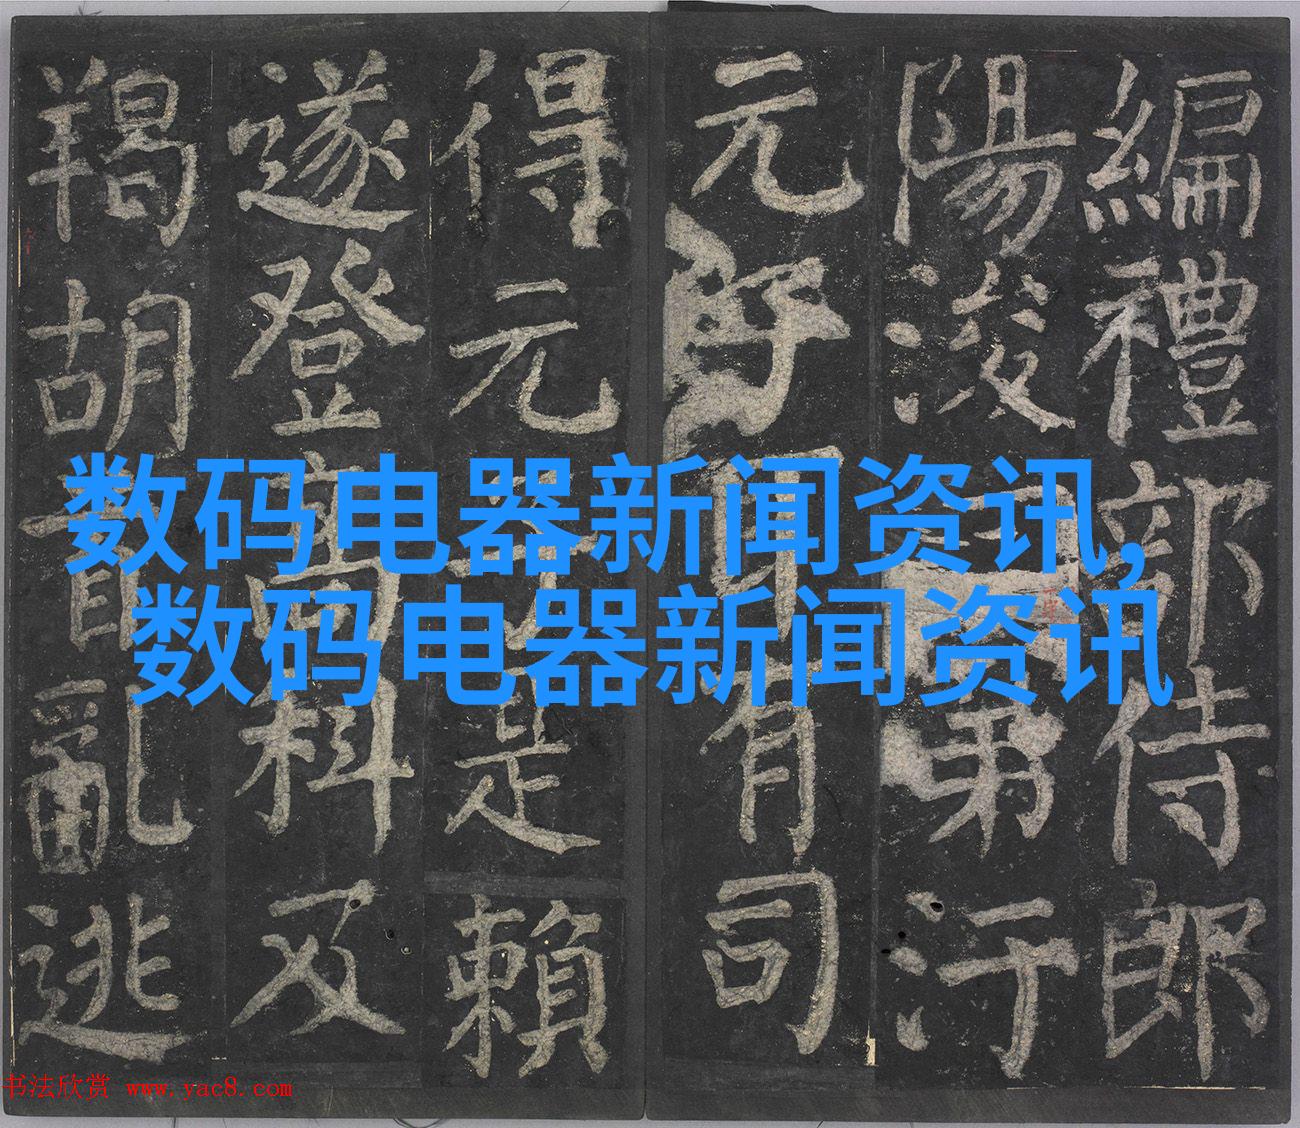 編禮部侍郎
陽浚第汙
元子耳有司
得元子是賴
遂登高科及
羯胡首亂逃
数码电器新闻资讯,
数码电器新闻资讯
书法欣赏 www.yac8.com